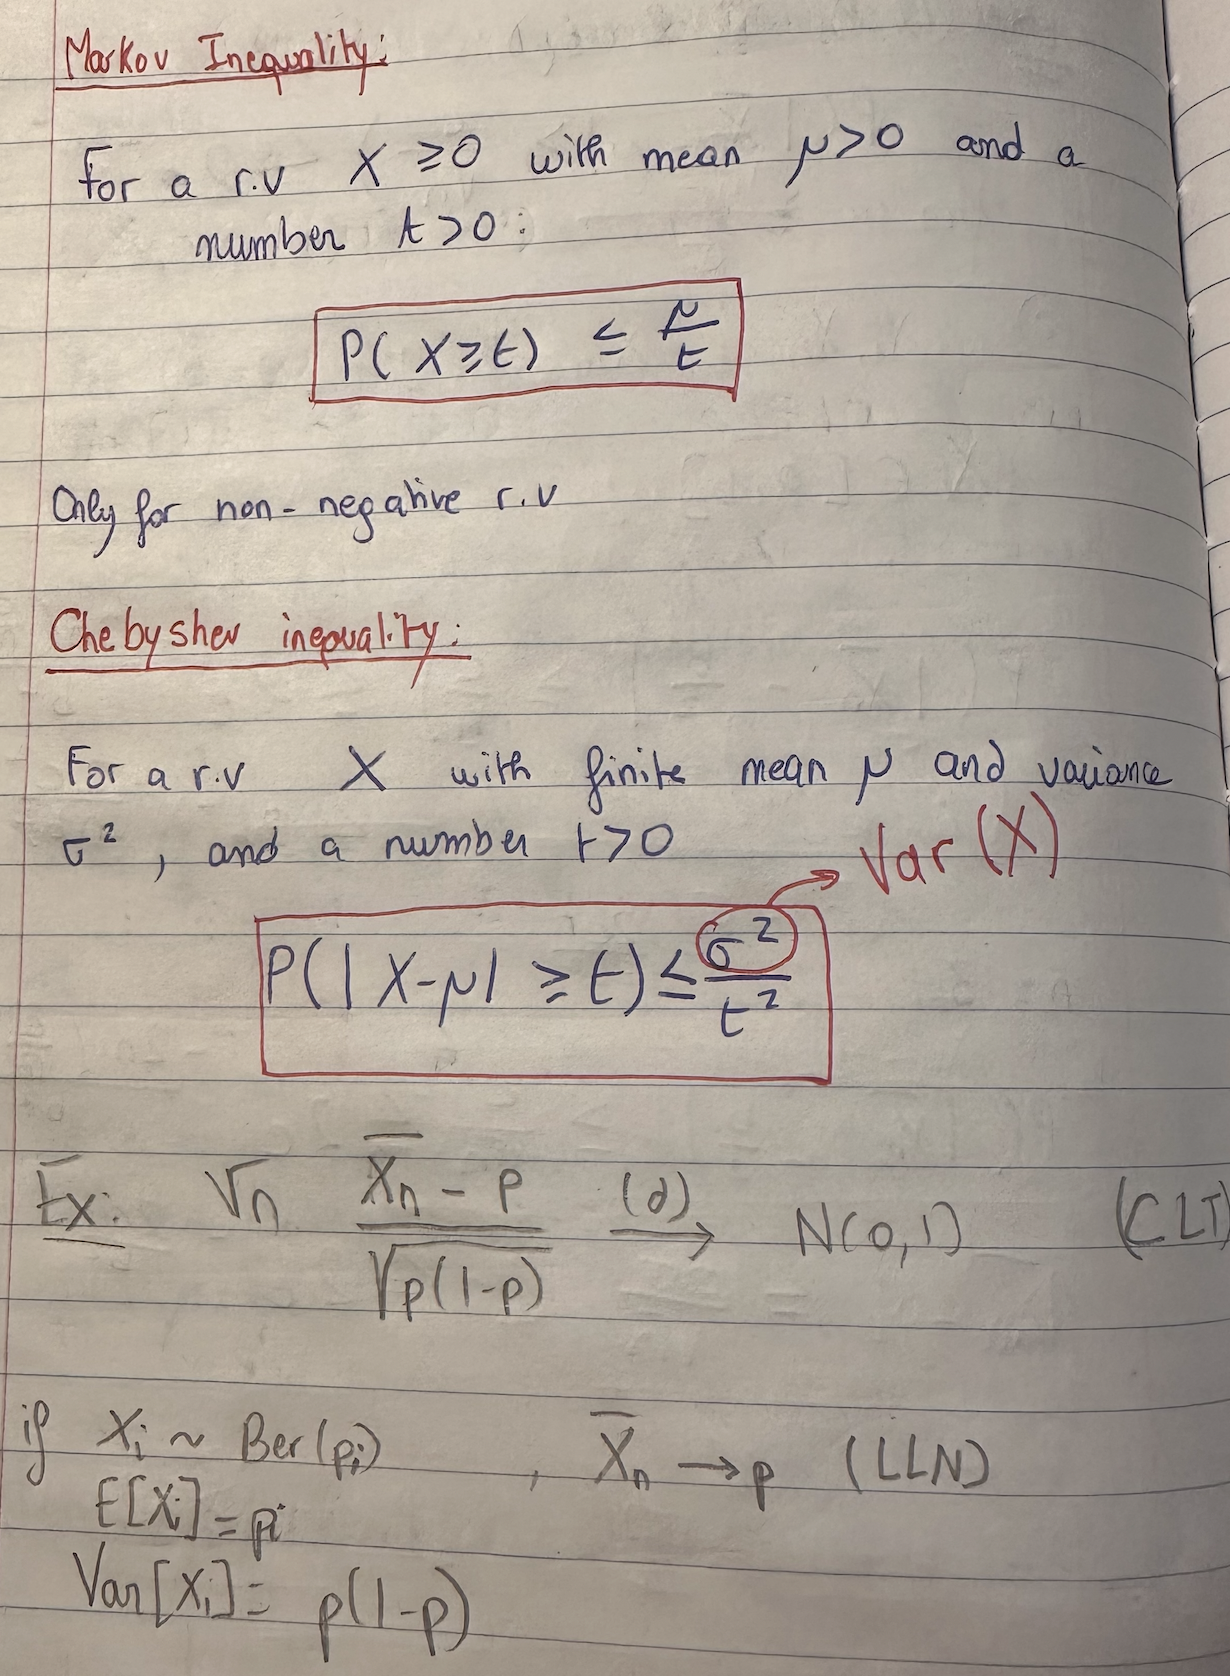 Markov Inequality:
For a r.v X ≥0 with mean μ>0 and a
number t>0:
P( X≥t) ≤ μ/t
Only for non-negative r.v
Chebyshev inequality:
For a r.v X with finite mean μ and variance
σ², and a number t>0
Var(X)
P(|X-μ| ≥ t) ≤ σ²/t²
Ex: √n (X̄n - p)/√p(1-p) (d)→ N(0,1) (CLT)
if Xi ~ Ber(pi) , X̄n → p (LLN)
E[Xi] = pi
Var[Xi] = p(1-p)